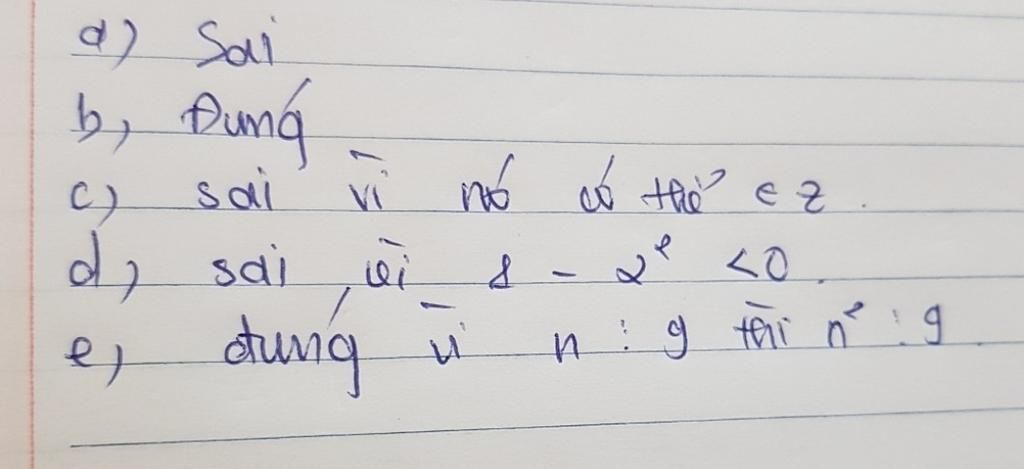 a) Sai
b, Đúng
c) sai vì nó có thể ∈ Z.
d, sai vì 1 - 2² < 0.
e, đúng vì n ⋮ 9 thì n² ⋮ 9.